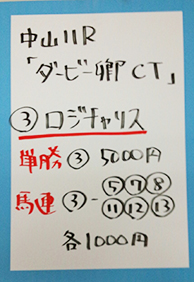 中山11R
「ダービー卿CT」
③ロジチャリス
単勝 ③ 5000円
馬連 ③-⑤⑦⑧
⑪⑫⑬
各1000円